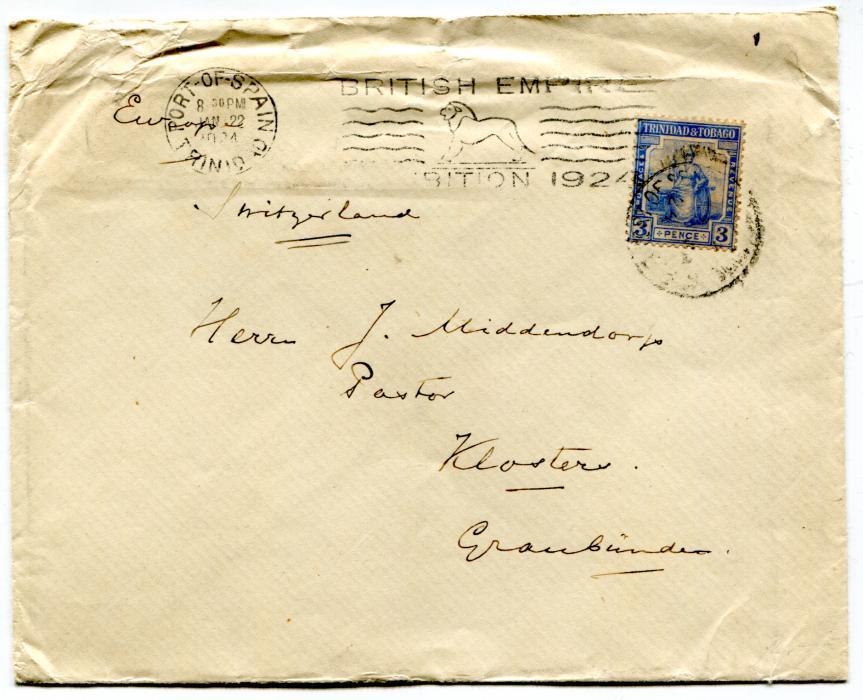 PORT-OF-SPAIN
8 30 PM
JAN 22
1924
TRINIDAD
BRITISH EMPIRE
EXHIBITION 1924
TRINIDAD & TOBAGO
POSTAGE & REVENUE
3 PENCE 3
Europe
Switzerland
Herrn J. Middendorp
Pastor
Klosters.
Graubünden.